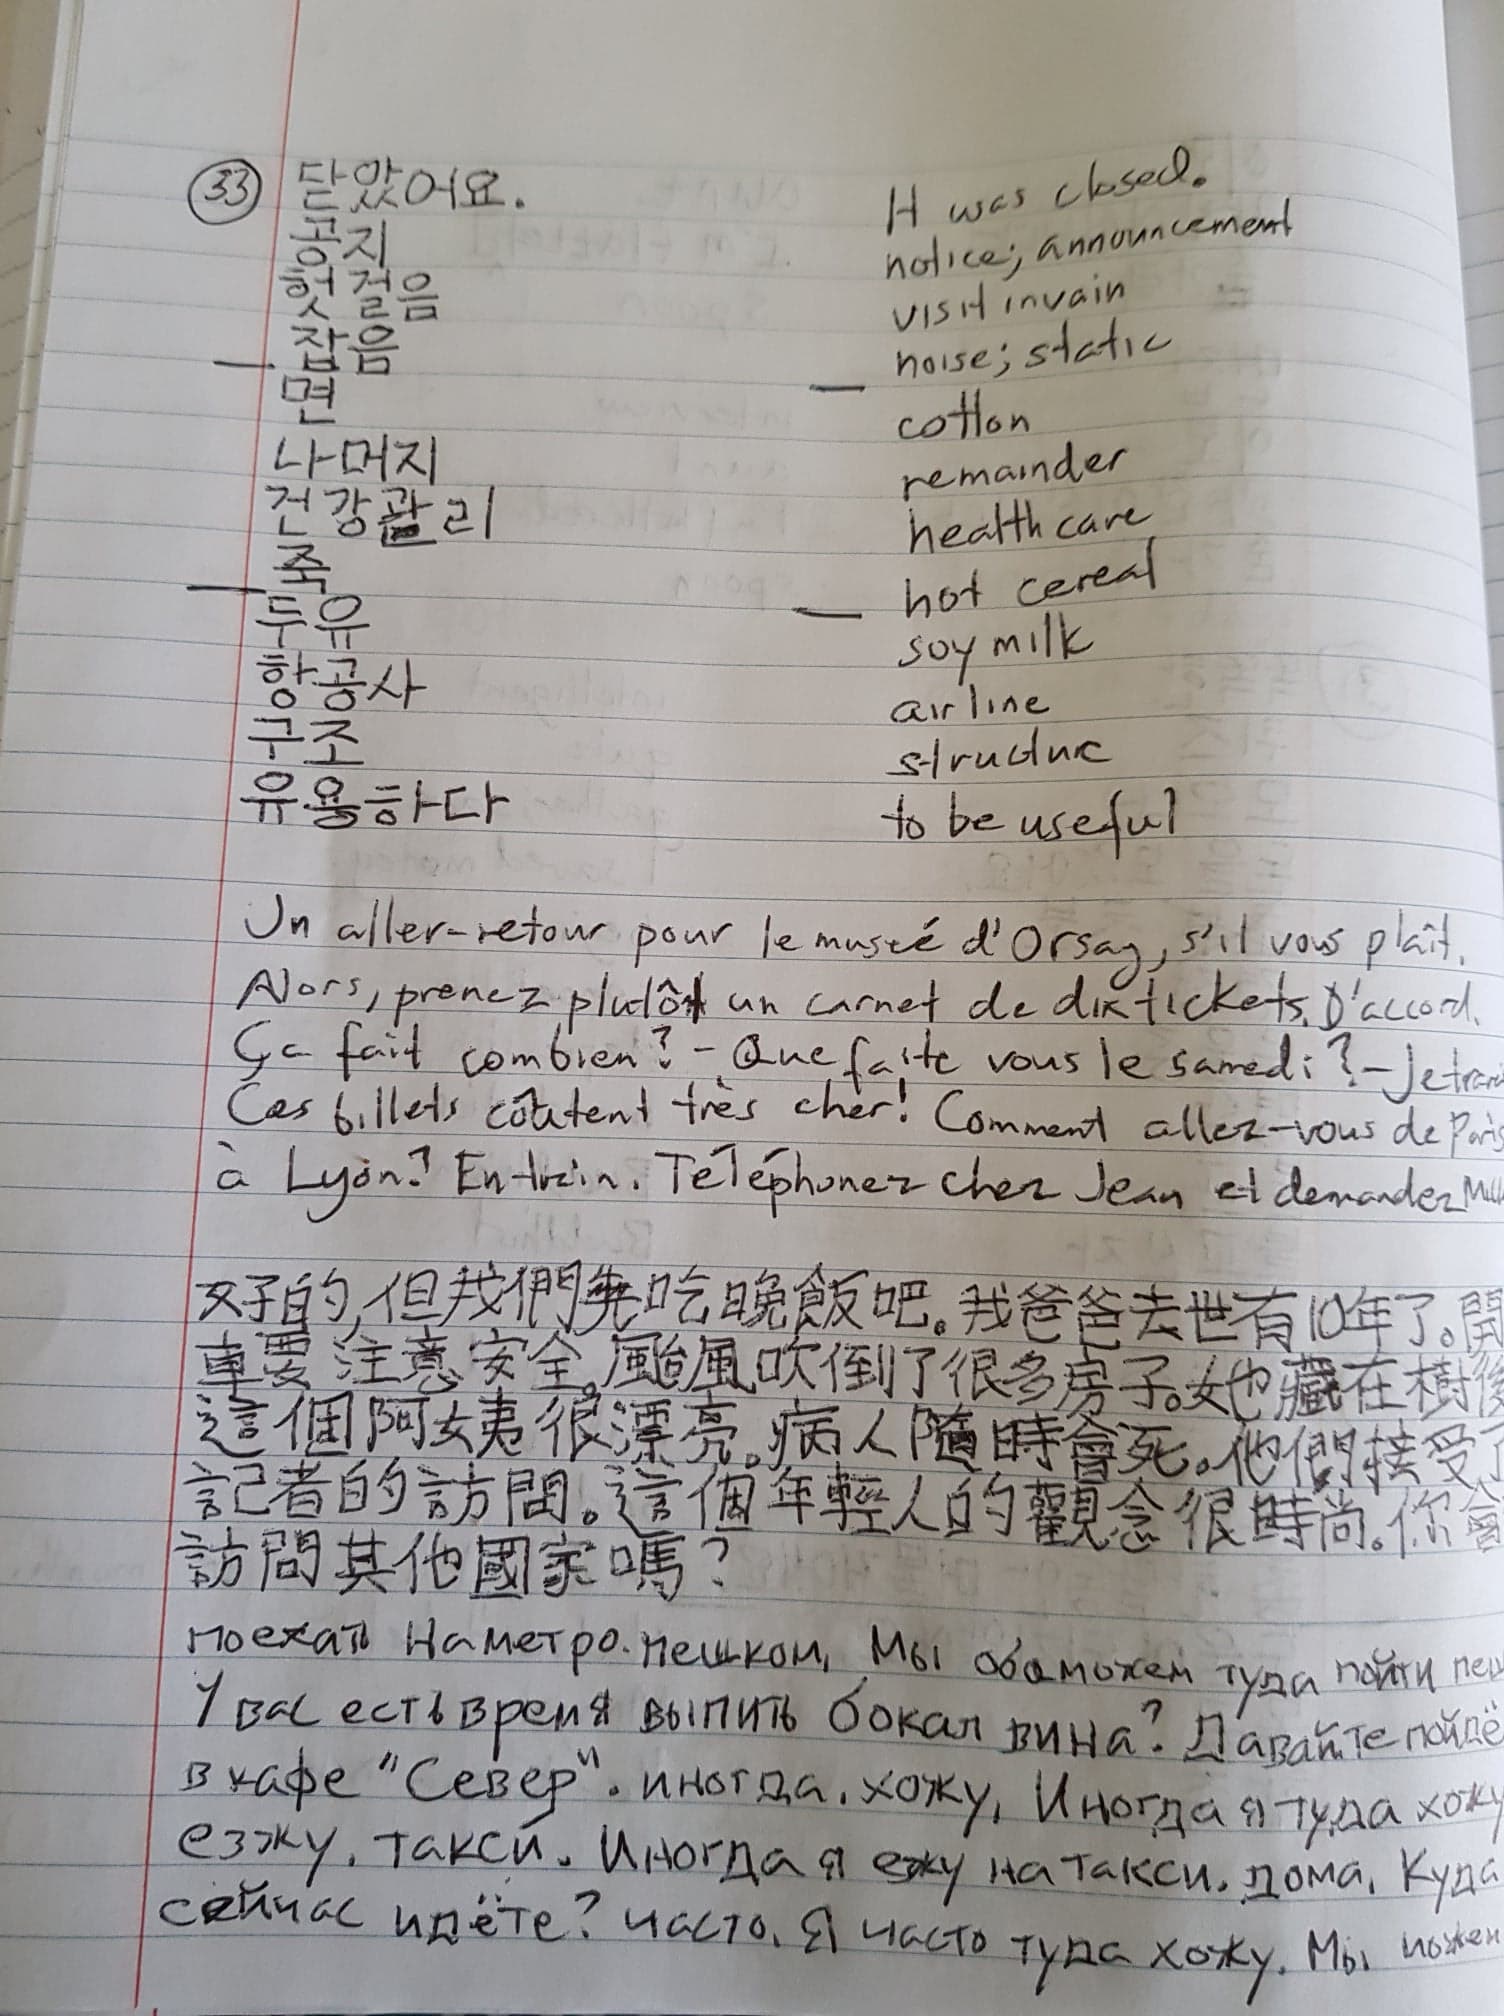 33 닫았어요. It was closed.
공지 notice; announcement
헛걸음 visit in vain
잡음 noise; static
면 cotton
나머지 remainder
건강관리 health care
죽 hot cereal
두유 soy milk
항공사 airline
구조 structure
유용하다 to be useful
Un aller-retour pour le museé d'Orsay, s'il vous plaît.
Alors, prenez plutôt un carnet de dix tickets. D'accord.
Ça fait combien? - Que faite vous le samedi? - Je
Ces billets coûtent très cher! Comment allez-vous de Paris
à Lyon? En train. Téléphonez chez Jean et demandez
好的,但我們先吃晚飯吧。我爸爸去世有10年了。開
車要注意安全。颱風吹倒了很多房子。她藏在樹後
這個阿姨很漂亮。病人隨時會死。他們接受了
記者的訪問。這個年輕人的觀念很時尚。你會
訪問其他國家嗎?
поехать на метро. пешком. Мы оба можем туда пойти
У вас есть время выпить бокал вина? Давайте пойдё
в кафе "Север". иногда. хожу. Иногда я туда хожу
езжу. такси. Иногда я езжу на такси. дома. Куда
сейчас идёте? часто. Я часто туда хожу. Мы можем